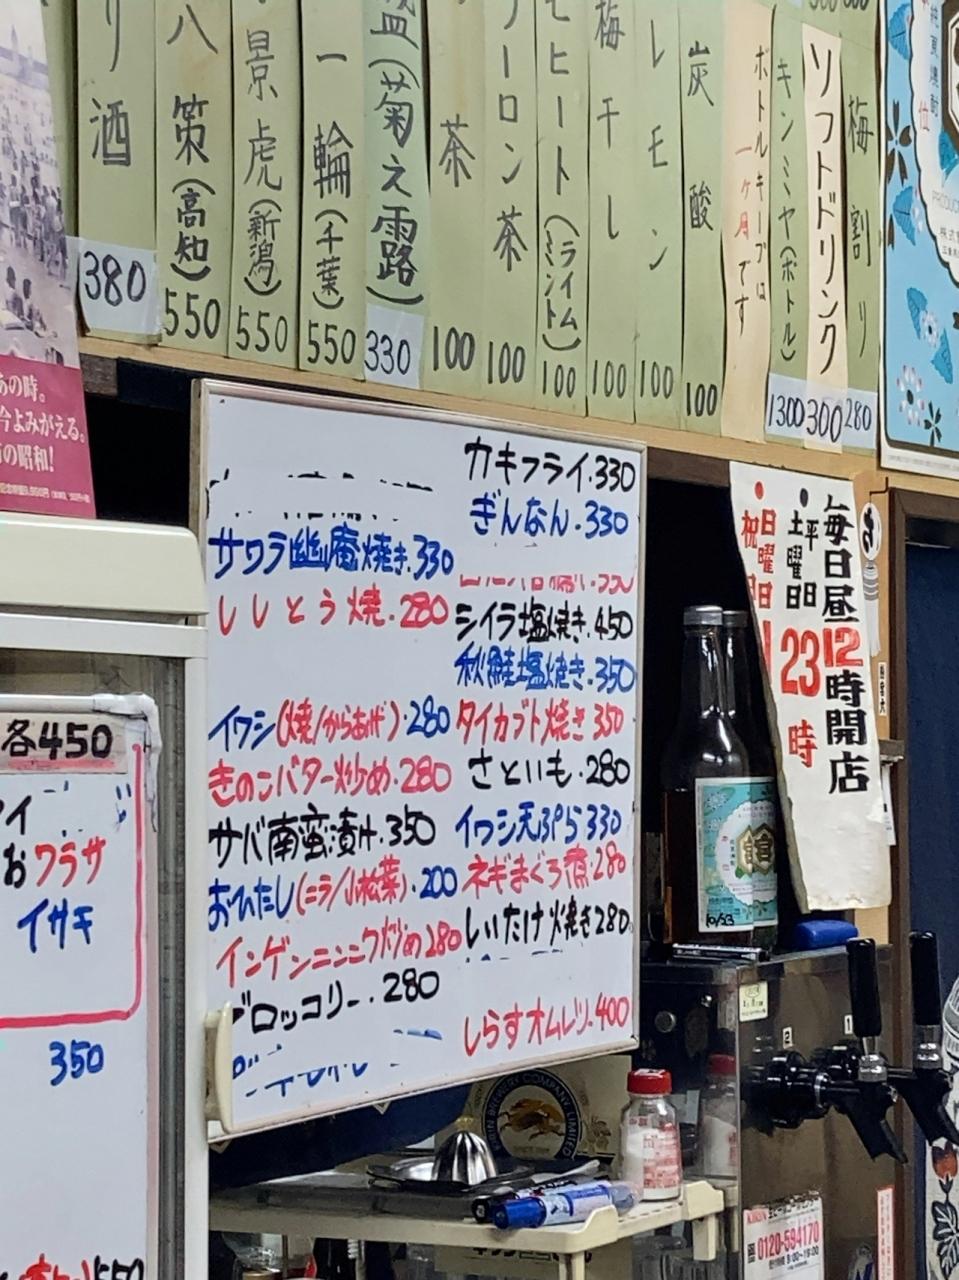 酒
380
八策(高知)
550
景虎(新潟)
550
一輪(千葉)
550
(菊之露)
330
茶
100
ーロン茶
100
モヒート(ライムミント)
100
梅干し
100
レモン
100
炭酸
100
ボトルキープは
一ヶ月です
キンミヤ(ボトル)
1300
ソフトドリンク
300
梅割り
280
あの時。
今よみがえる。
の昭和!
カキフライ.330
ぎんなん.330
サワラ幽庵焼き.330
ししとう焼.280
シイラ塩焼き.450
秋鮭塩焼き.350
イワシ(焼/からあげ)・280
タイカブト焼き350
きのこバター炒め.280
さといも.280
サバ南蛮漬け.350
イワシ天ぷら330
おひたし(ニラ/小松菜).200
ネギまぐろ煮.280
インゲンニンニク炒め280
しいたけ焼き280
ブロッコリー.280
しらすオムレツ.400
毎日昼12時開店
平日
土曜日
23時
日曜日
祝日
各450
お
ワラサ
イサキ
350
550
10/53
2
1
KIRIN
0120-594170